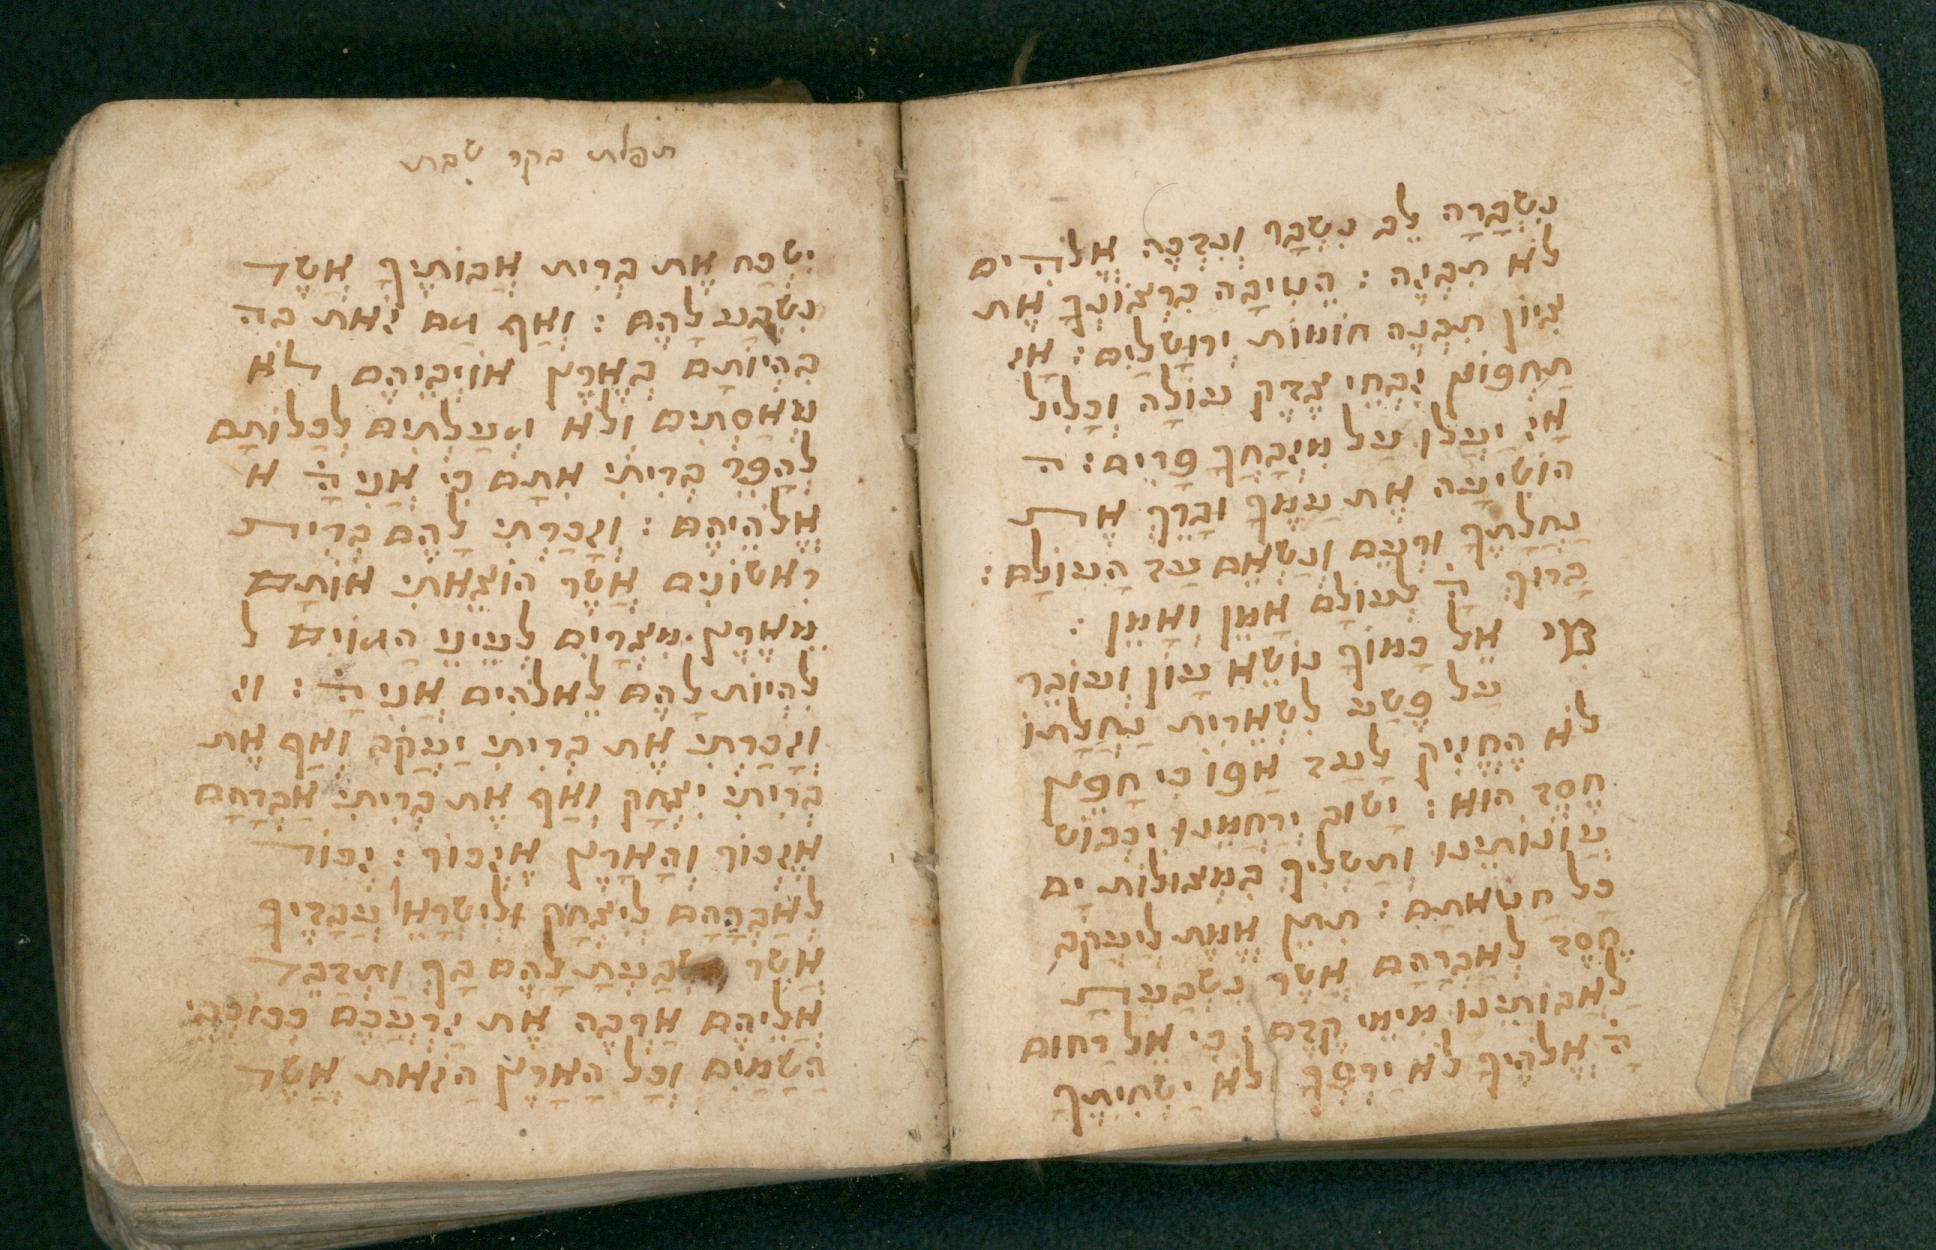 נִשְׁבָּרָה לֵב נִשְׁבָּר וְנִדְכֶּה אֱלֹהִים
לֹא תִבְזֶה : הֵטִיבָה בִרְצוֹנְךָ אֶת
צִיּוֹן תִּבְנֶה חוֹמוֹת יְרוּשָׁלַיִם : אָז
תַּחְפּוֹץ זִבְחֵי צֶדֶק עוֹלָה וְכָלִיל
אָז יַעֲלוּ עַל מִזְבָּחֲךָ פָּרִים : ה
הוֹשִׁיעָה אֶת עַמֶּךָ וּבָרֵךְ אֶת
נַחֲלָתֶךָ וּרְעֵם וְנַשְּׂאֵם עַד הָעוֹלָם :
בָּרוּךְ יָהּ לְעוֹלָם אָמֵן וְאָמֵן :
מִי אֵל כָּמוֹךָ נוֹשֵׂא עָוֹן וְעוֹבֵר
עַל פֶּשַׁע לִשְׁאֵרִית נַחֲלָתוֹ
לֹא הֶחֱזִיק לָעַד אַפּוֹ כִּי חָפֵץ
חֶסֶד הוּא : יָשׁוּב יְרַחֲמֵנוּ יִכְבּוֹשׁ
עֲוֹנוֹתֵינוּ וְתַשְׁלִיךְ בִּמְצוּלוֹת יָם
כָּל חַטֹּאתָם : תִּתֵּן אֱמֶת לְיַעֲקֹב
חֶסֶד לְאַבְרָהָם אֲשֶׁר נִשְׁבַּעְתָּ
לַאֲבוֹתֵינוּ מִימֵי קֶדֶם : כִּי אֵל רַחוּם
יָהּ אֱלֹהֶיךָ לֹא יַרְפְּךָ וְלֹא יַשְׁחִיתֶךָ
תפלת בקר שבת
יִשְׁכַּח אֶת בְּרִית אֲבוֹתֶיךָ אֲשֶׁר
נִשְׁבַּע לָהֶם : וְאַף גַּם זֹאת בה
בִּהְיוֹתָם בְּאֶרֶץ אוֹיְבֵיהֶם לֹא
מְאַסְתִּים וְלֹא גְעַלְתִּים לְכַלּוֹתָם
לְהָפֵר בְּרִיתִי אִתָּם כִּי אֲנִי יָהּ א
אֱלֹהֵיהֶם : וְזָכַרְתִּי לָהֶם בְּרִית
רִאשׁוֹנִים אֲשֶׁר הוֹצֵאתִי אוֹתָם
מֵאֶרֶץ מִצְרַיִם לְעֵינֵי הַגּוֹיִם ל
לִהְיוֹת לָהֶם לֵאלֹהִים אֲנִי יָהּ : וז
וְזָכַרְתִּי אֶת בְּרִיתִי יַעֲקֹב וְאַף אֶת
בְּרִיתִי יִצְחָק וְאַף אֶת בְּרִיתִי אַבְרָהָם
אֶזְכּוֹר וְהָאָרֶץ אֶזְכּוֹר : זְכוֹר
לְאַבְרָהָם לְיִצְחָק וּלְיִשְׂרָאֵל עֲבָדֶיךָ
אֲשֶׁר נִשְׁבַּעְתָּ לָהֶם בָּךְ וַתְּדַבֵּר
אֲלֵיהֶם אַרְבֶּה אֶת זַרְעֲכֶם כְּכוֹכְבֵי
הַשָּׁמַיִם וְכָל הָאָרֶץ הַזֹּאת אֲשֶׁר